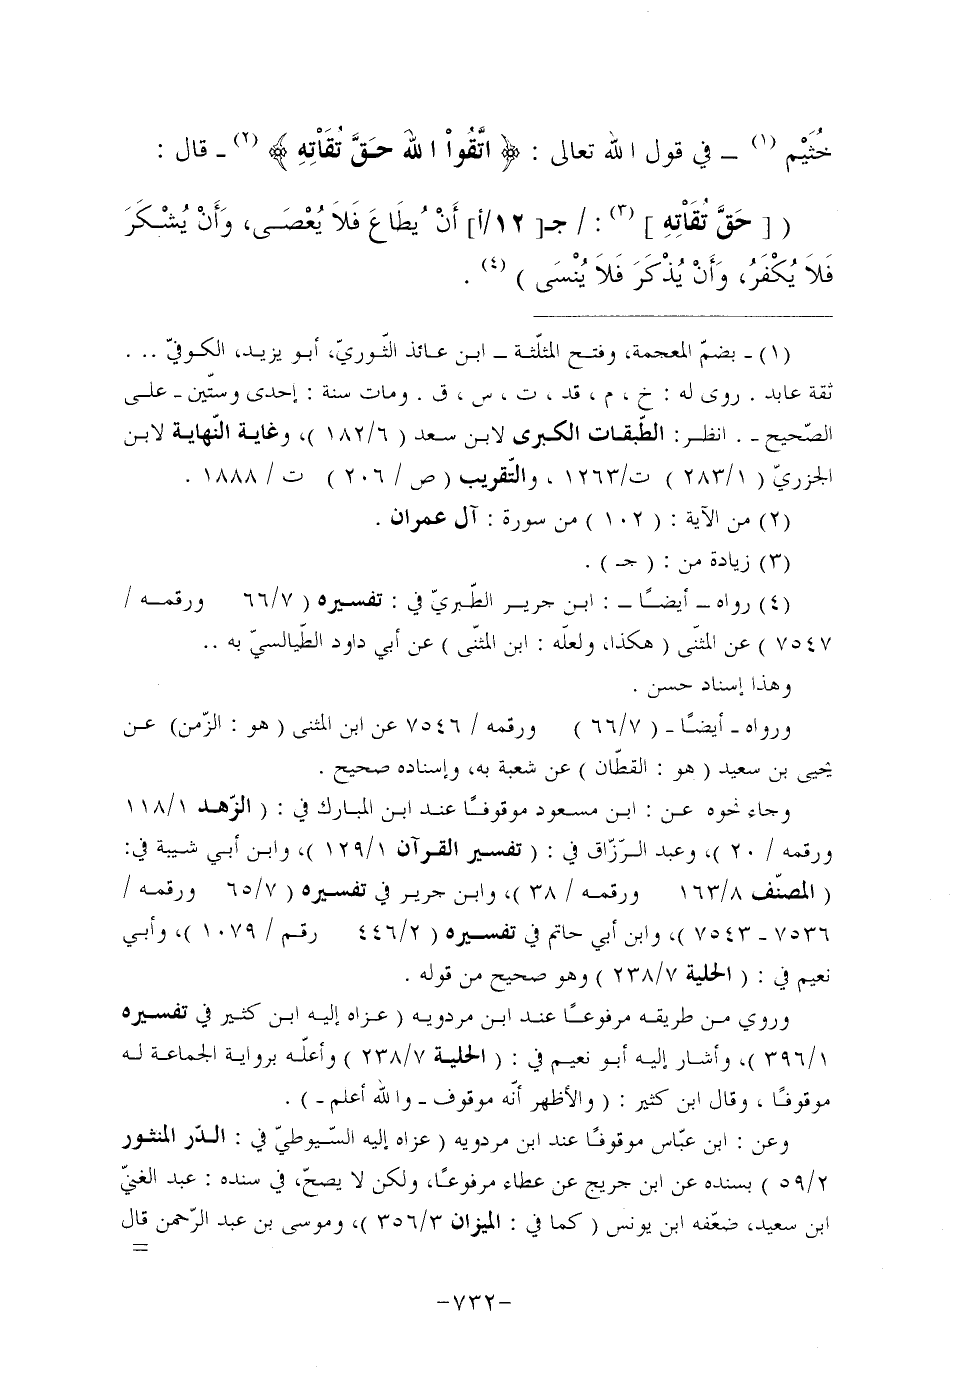 خُثَيْم (١) – في قول الله تعالى : ﴿ اتَّقُواْ اللهَ حَقَّ تُقَاتِهِ ﴾ (٢) - قال :
( [ حَقَّ تُقَاتِهِ ] (٣) : / جـ[ ١٢/أ] أَنْ يُطَاعَ فَلاَ يُعْصَى، وَأَنْ يُشْكَرَ
فَلاَ يُكْفَرُ، وَأَنْ يُذْكَرَ فَلاَ يُنْسَى ) (٤) .
(١) - بضمّ المعجمة، وفتح المثلّثة – ابن عائذ الثّوريّ، أبو يزيد، الكوفيّ .. .
ثقة عابد . روى له : خ ، م ، قد ، ت ، س ، ق . ومات سنة : إحدى وستّين - على
الصّحيح - . انظر: الطّبقات الكبرى لابن سعد ( ١٨٢/٦ )، وغاية النّهاية لابن
الجزريّ ( ٢٨٣/١ ) ت/١٢٦٣ ، والتّقريب ( ص / ٢٠٦ ) ت / ١٨٨٨ .
(٢) من الآية : ( ١٠٢ ) من سورة : آل عمران .
(٣) زيادة من : ( جـ ) .
(٤) رواه – أيضًا – : ابن جرير الطّبريّ في : تفسيره ( ٦٦/٧ ورقمه /
٧٥٤٧ ) عن المثنّى ( هكذا، ولعلّه : ابن المثنّى ) عن أبي داود الطّيالسيّ به ..
وهذا إسناد حسن .
ورواه - أيضًا - ( ٦٦/٧ ) ورقمه / ٧٥٤٦ عن ابن المثنى ( هو : الزّمن) عن
يحيى بن سعيد ( هو : القطّان ) عن شعبة به، وإسناده صحيح .
وجاء نحوه عن : ابن مسعود موقوفًا عند ابن المبارك في : ( الزّهد ١١٨/١
ورقمه / ٢٠ )، وعبد الرّزّاق في : ( تفسير القرآن ١٢٩/١ )، وابن أبي شيبة في:
( المصنّف ١٦٣/٨ ورقمه / ٣٨ )، وابن جرير في تفسيره ( ٦٥/٧ ورقمه /
٧٥٣٦ - ٧٥٤٣ )، وابن أبي حاتم في تفسيره ( ٤٤٦/٢ رقم / ١٠٧٩ )، وأبي
نعيم في : ( الحلية ٢٣٨/٧ ) وهو صحيح من قوله .
وروي من طريقه مرفوعًا عند ابن مردويه ( عزاه إليه ابن كثير في تفسيره
٣٩٦/١ )، وأشار إليه أبو نعيم في : ( الحلية ٢٣٨/٧ ) وأعلّه برواية الجماعة له
موقوفًا ، وقال ابن كثير : ( والأظهر أنّه موقوف - والله أعلم - ) .
وعن : ابن عبّاس موقوفًا عند ابن مردويه ( عزاه إليه السّيوطيّ في : الدّر المنثور
٥٩/٢ ) بسنده عن ابن جريج عن عطاء مرفوعًا، ولكن لا يصحّ، في سنده : عبد الغنيّ
ابن سعيد، ضعّفه ابن يونس ( كما في : الميزان ٣٥٦/٣ )، وموسى بن عبد الرّحمن قال
=
-٧٣٢-